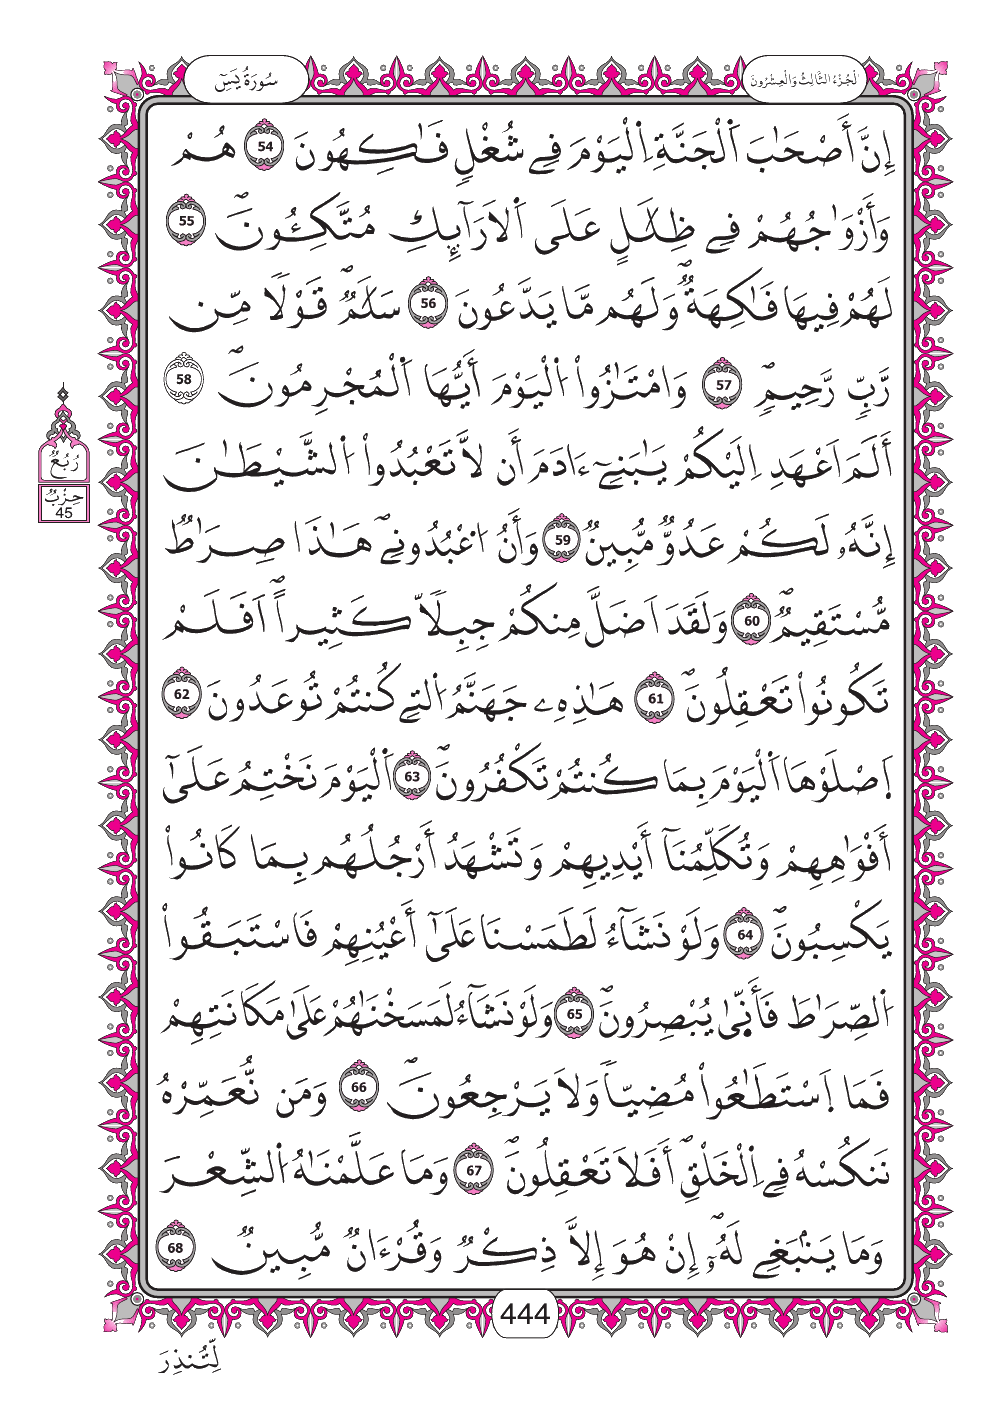 سُورَةُ يَسِٓ
اَلْجُزْءُ الثَّالِثُ وَالْعِشْرُونَ
إِنَّ أَصْحَٰبَ اَ۬لْجَنَّةِ اِ۬لْيَوْمَ فِے شُغْلٖ فَٰكِهُونَ 54 هُمْ
وَأَزْوَٰجُهُمْ فِے ظِلَٰلٍ عَلَى اَ۬لَارَآئِكِ مُتَّكِـُٔونَۖ 55
لَهُمْ فِيهَا فَٰكِهَةٞۖ وَلَهُم مَّا يَدَّعُونَ 56 سَلَٰمٞۖ قَوْلاٗ مِّن
رَّبّٖ رَّحِيمٖۖ 57 وَامْتَٰزُواْ اُ۬لْيَوْمَ أَيُّهَا اَ۬لْمُجْرِمُونَۖ 58
أَلَمَ اَعْهَدِ اِلَيْكُمْ يَٰبَنِےٓ ءَادَمَ أَن لَّا تَعْبُدُواْ اُ۬لشَّيْطَٰنَ
إِنَّهُۥ لَكُمْ عَدُوّٞ مُّبِينٞ 59 وَأَنُ اُ۟عْبُدُونِےۖ هَٰذَا صِرَٰطٞ
مُّسْتَقِيمٞۖ 60 وَلَقَدَ اَضَلَّ مِنكُمْ جِبِلّاٗ كَثِيراًۖ اَفَلَمْ
تَكُونُواْ تَعْقِلُونَۖ 61 هَٰذِهِۦ جَهَنَّمُ اُ۬لتِے كُنتُمْ تُوعَدُونَ 62
اَ۪صْلَوْهَا اَ۬لْيَوْمَ بِمَا كُنتُمْ تَكْفُرُونَۖ 63 اَ۬لْيَوْمَ نَخْتِمُ عَلَىٰٓ
أَفْوَٰهِهِمْ وَتُكَلِّمُنَآ أَيْدِيهِمْ وَتَشْهَدُ أَرْجُلُهُم بِمَا كَانُواْ
يَكْسِبُونَۖ 64 وَلَوْ نَشَآءُ لَطَمَسْنَا عَلَىٰٓ أَعْيُنِهِمْ فَاسْتَبَقُواْ
اُ۬لصِّرَٰطَ فَأَنّ۪ىٰ يُبْصِرُونَۖ 65 وَلَوْ نَشَآءُ لَمَسَخْنَٰهُمْ عَلَىٰ مَكَانَتِهِمْ
فَمَا اَ۪سْتَطَٰعُواْ مُضِيّاٗ وَلَا يَرْجِعُونَۖ 66 وَمَن نُّعَمِّرْهُ
نَنكُسْهُ فِے اِ۬لْخَلْقِۖ أَفَلَا تَعْقِلُونَۖ 67 وَمَا عَلَّمْنَٰهُ اُ۬لشِّعْرَ
وَمَا يَنۢبَغِے لَهُۥٓۖ إِنْ هُوَ إِلَّا ذِكْرٞ وَقُرْءَانٞ مُّبِينٞ 68
رُبُعُ
حِزْبُ
45
444
لِّتُنذِرَ